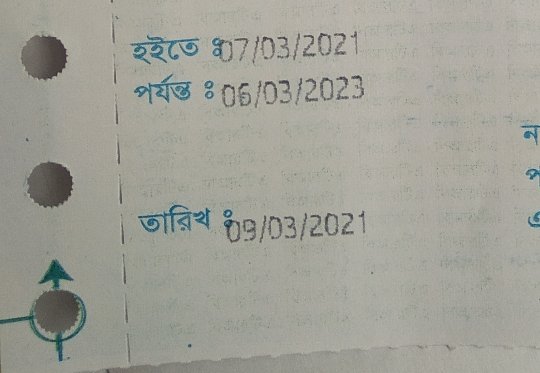 হইতে ঃ 07/03/2021
পর্যন্ত ঃ 06/03/2023
তারিখ ঃ 09/03/2021